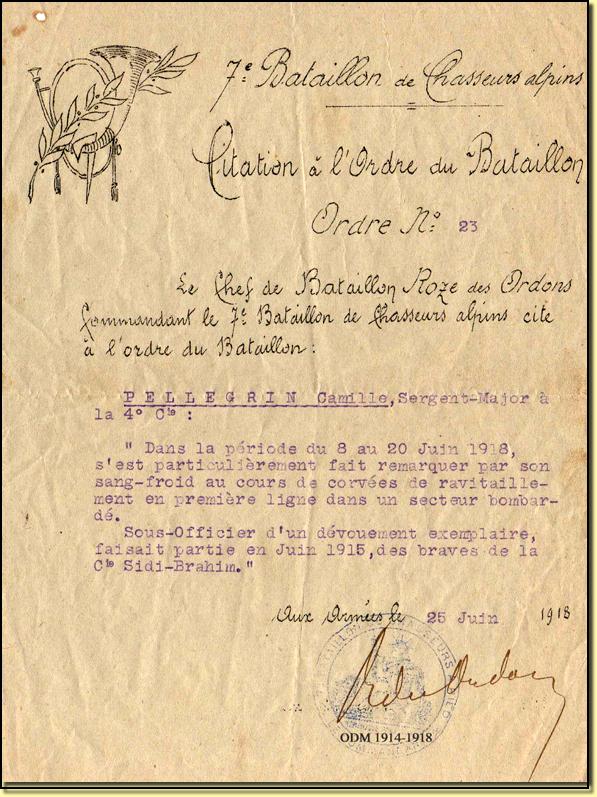 7e Bataillon de Chasseurs alpins
Citation à l'Ordre du Bataillon
Ordre No: 23
Le Chef de Bataillon Roze des Ordons
Commandant le 7e Bataillon de Chasseurs alpins cite
à l'ordre du Bataillon:
PELLEGRIN Camille, Sergent-Major à
la 4° Cie :
" Dans la période du 8 au 20 Juin 1918,
s'est particulièrement fait remarquer par son
sang-froid au cours de corvées de ravitaille-
ment en première ligne dans un secteur bombar-
dé.
Sous-Officier d'un dévouement exemplaire,
faisait partie en Juin 1915, des braves de la
Cie Sidi-Brahim."
Aux Armées le 25 Juin 1918
ODM 1914-1918